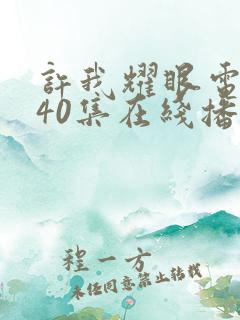 許我耀眼電
40集在綫播
程一方
未经同意禁止转载